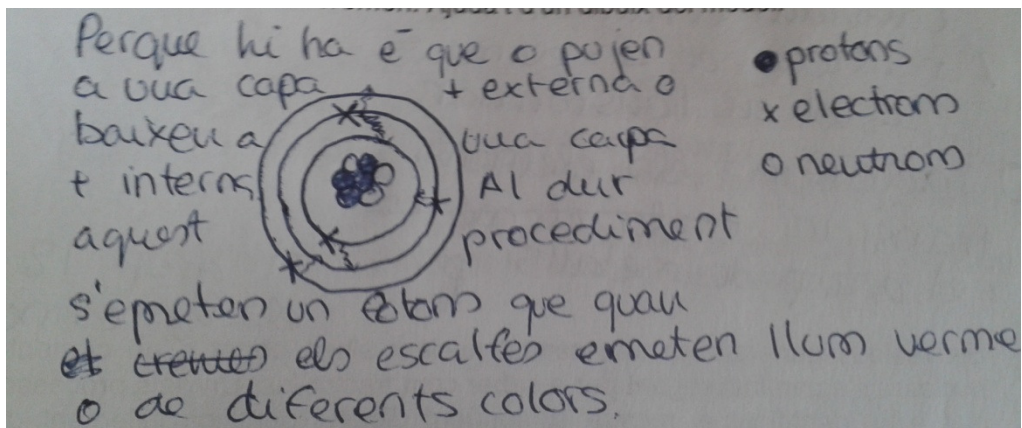 Perque hi ha e⁻ que o pujen
a una capa + externa o
baixen a una capa
+ interna Al dur
aquest procediment
s'emeten un fotons que quan
els escalfes emeten llum verme
o de diferents colors.
protons
x electrons
o neutrons